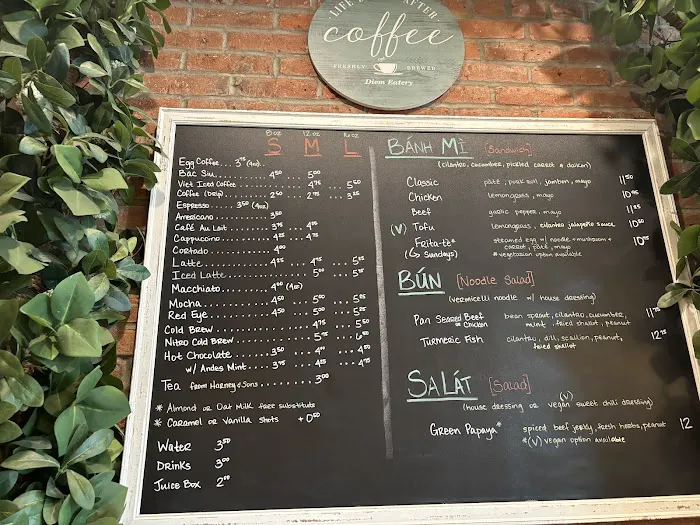 coffee
FRESHLY BREWED
Diem Eatery
8 oz 12 oz 16 oz
S M L
Egg Coffee.. 3⁷⁵ (4oz)
Bac Siu 4⁵⁰ 5⁰⁰
Viet Iced Coffee 4⁷⁵ 5⁵⁰
Coffee (Drip) 2⁵⁰ 2⁷⁵ 3²⁵
Espresso 3⁵⁰ (4oz)
Americano 3⁵⁰
Café Au Lait 3⁷⁵ 4²⁵
Cappuccino 4²⁵ 4⁷⁵
Cortado 4⁰⁰
Latte 4²⁵ 4⁷⁵ 5²⁵
Iced Latte 5⁰⁰
Macchiato 4⁰⁰ (4oz)
Mocha 4⁵⁰ 5⁰⁰
Red Eye 4⁵⁰ 5⁰⁰ 5⁵⁰
Cold Brew 4⁷⁵ 5⁵⁰
Nitro Cold Brew
Hot Chocolate 3⁵⁰ 4⁵⁰
w/ Andes Mint 3⁷⁵ 4²⁵ 4⁷⁵
Tea from Harney & Sons 3⁰⁰
* Almond or Oat Milk free substitute
* Caramel or Vanilla shots + 0⁵⁰
Water 3⁵⁰
Drinks 3⁰⁰
Juice Box 2⁰⁰
BÁNH MÌ [Sandwich]
(cilantro, cucumber, pickled carrot & daikon)
Classic pâté, pork roll, jambon, mayo 11⁵⁰
Chicken lemongrass, mayo 10⁹⁵
Beef garlic pepper, mayo 11⁵⁰
(V) Tofu lemongrass, cilantro jalapeño sauce 10⁵⁰
Frita-tê* steamed egg w/ noodle + mushroom + 10⁷⁵
(↳ Sundays) carrot, pâté, mayo
* vegetarian option available
BÚN [Noodle Salad]
(vermicelli noodle w/ house dressing)
Pan Seared Beef bean sprout, cilantro, cucumber, 11⁷⁵
or Chicken mint, fried shallot, peanut
Turmeric Fish cilantro, dill, scallion, peanut, 12⁷⁵
fried shallot
SALÁT [Salad]
(V)
(house dressing or vegan sweet chili dressing)
Green Papaya* spiced beef jerky, fresh herbs, peanut 12
*(V) vegan option available